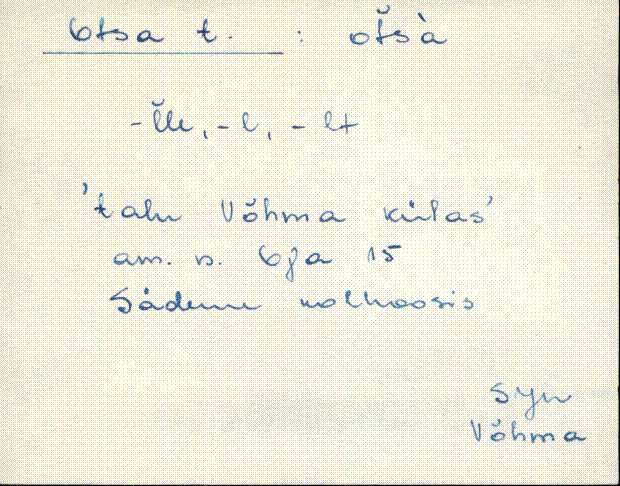 Otsa t. : ot̆sà
-l̆le, -l, -lt
'talu Võhma külas'
am. n. Oja 15
Sädeme kolhoosis
Võhma